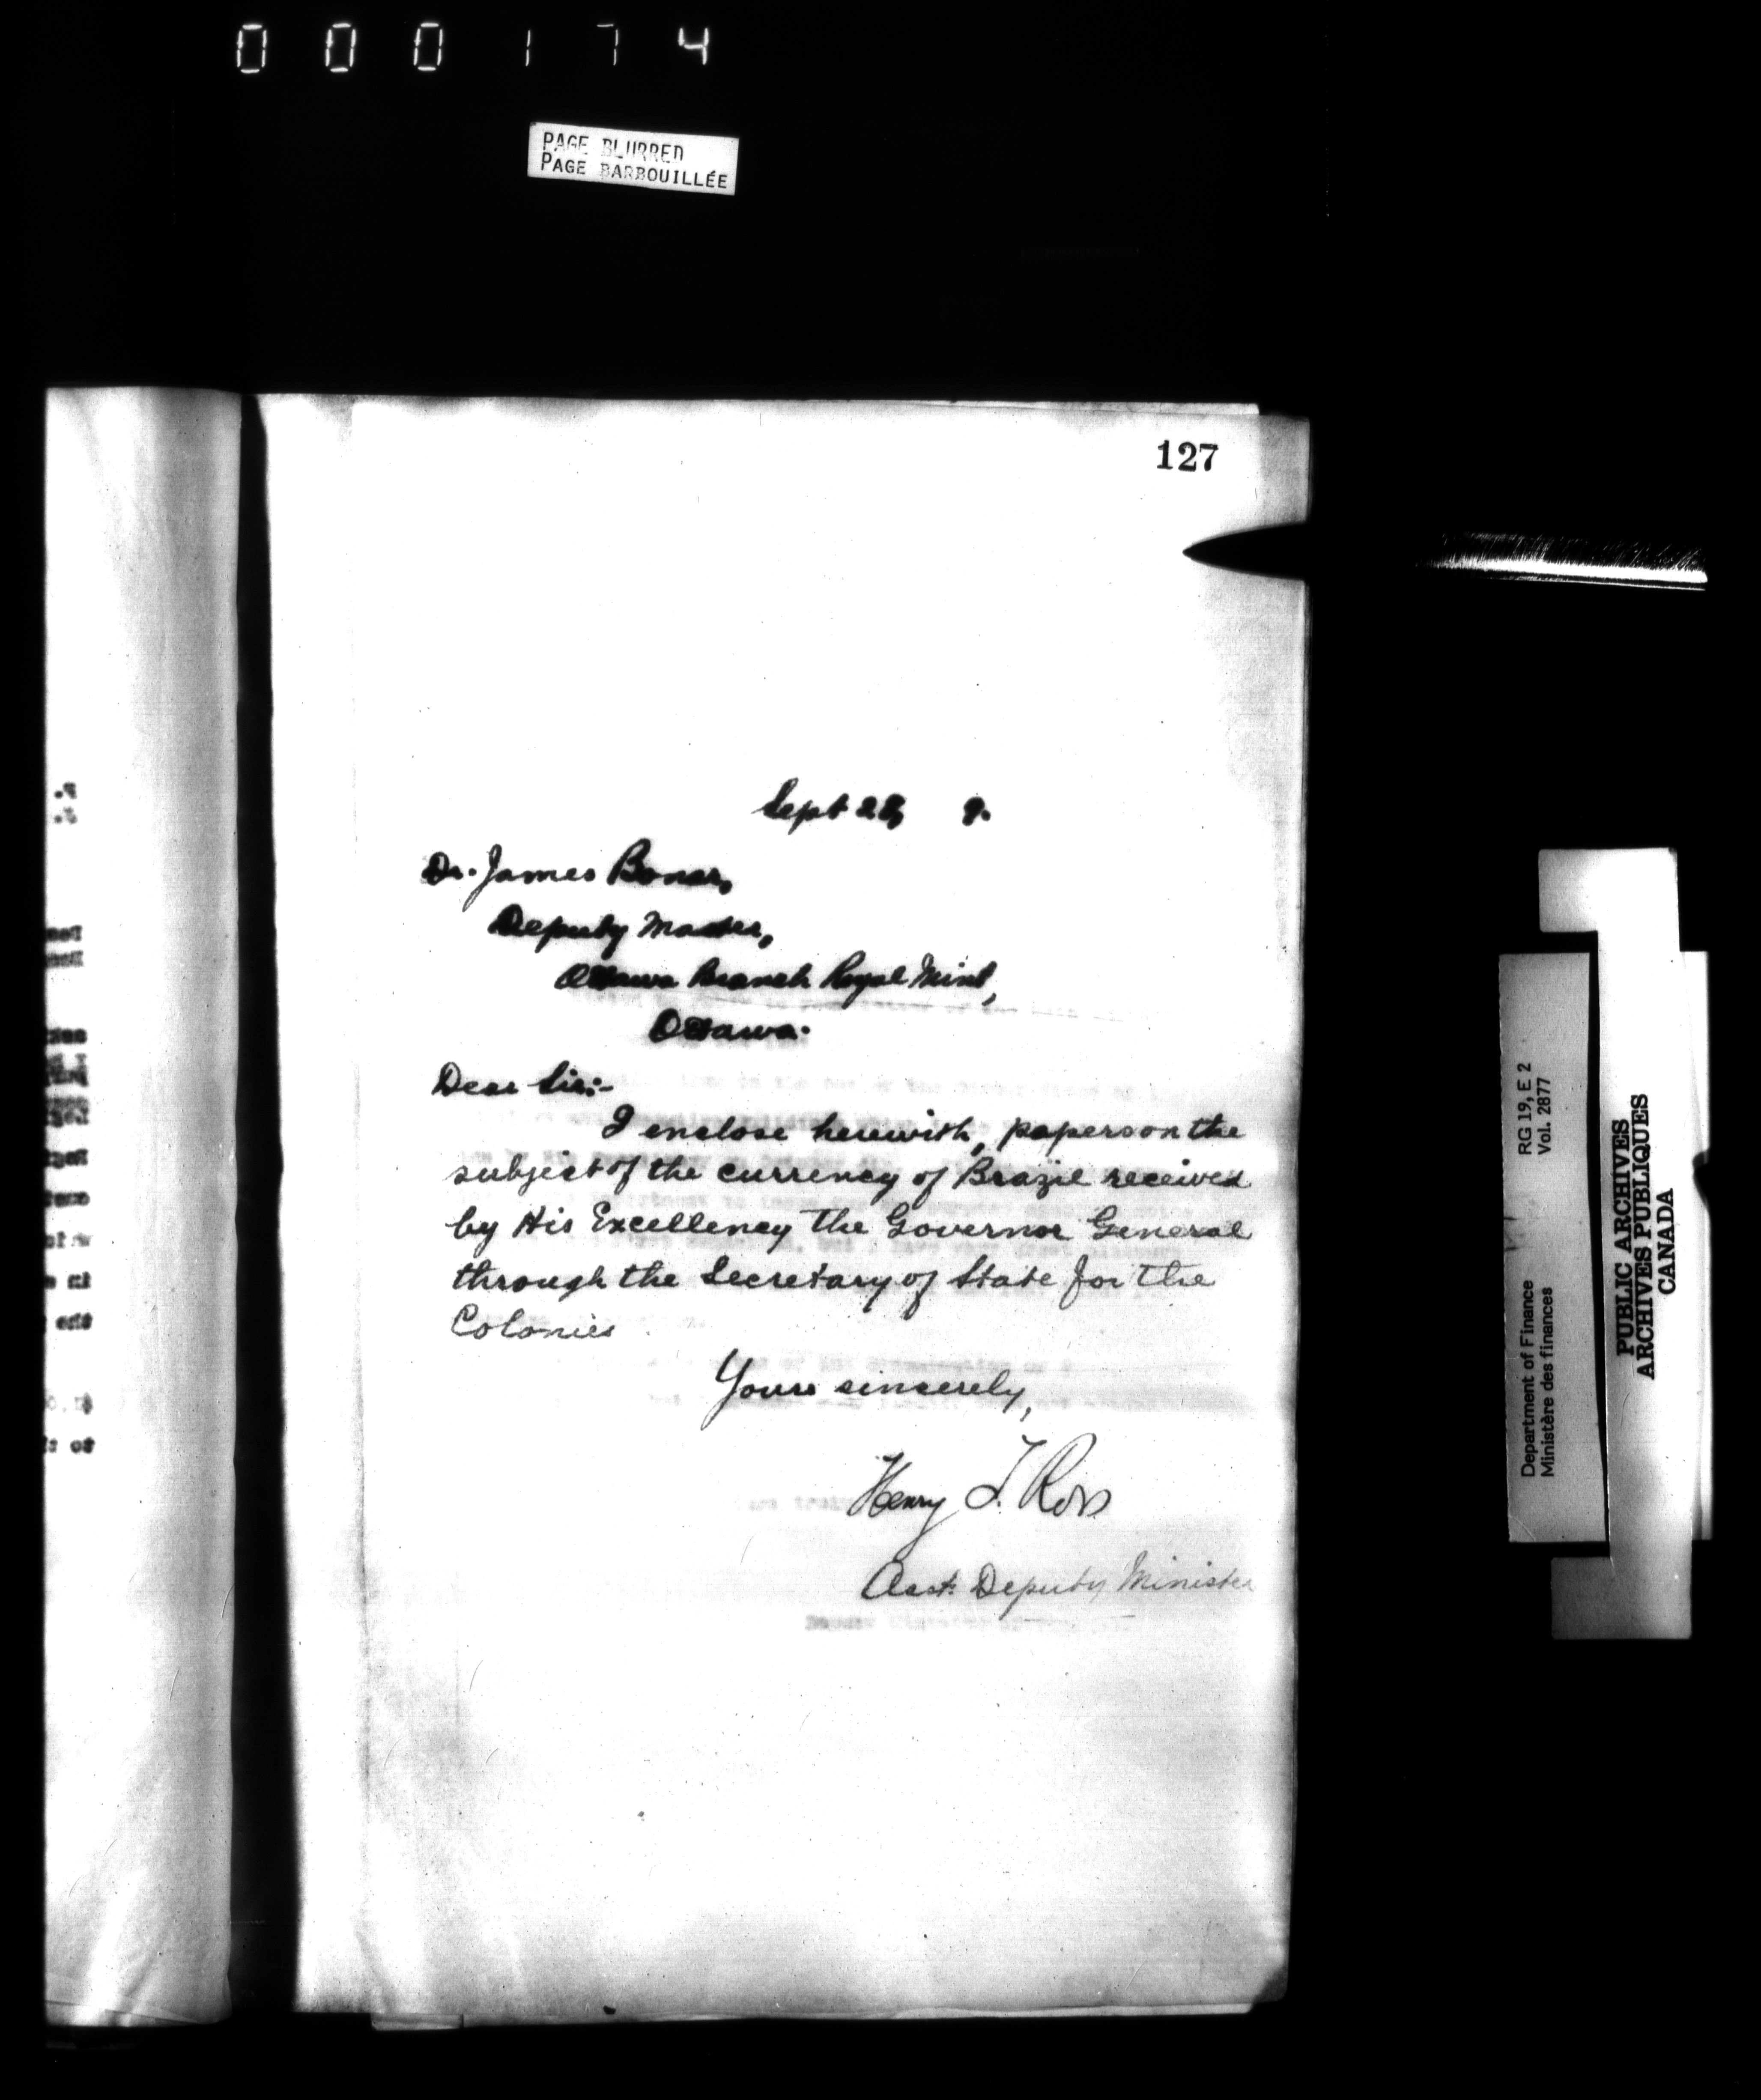 000174
PAGE BLURRED
PAGE BARBOUILLÉE
127
Sept 28, 9.
Dr. James Bonar,
Deputy Master,
Ottawa Branch Royal Mint,
Ottawa.
Dear Sir:-
I enclose herewith, papers on the
subject of the currency of Brazil received
by His Excellency the Governor General
through the Secretary of State for the
Colonies
Yours sincerely,
Henry T. Ross
Asst. Deputy Minister
Department of Finance RG 19, E 2
Ministère des finances Vol. 2877
PUBLIC ARCHIVES
ARCHIVES PUBLIQUES
CANADA